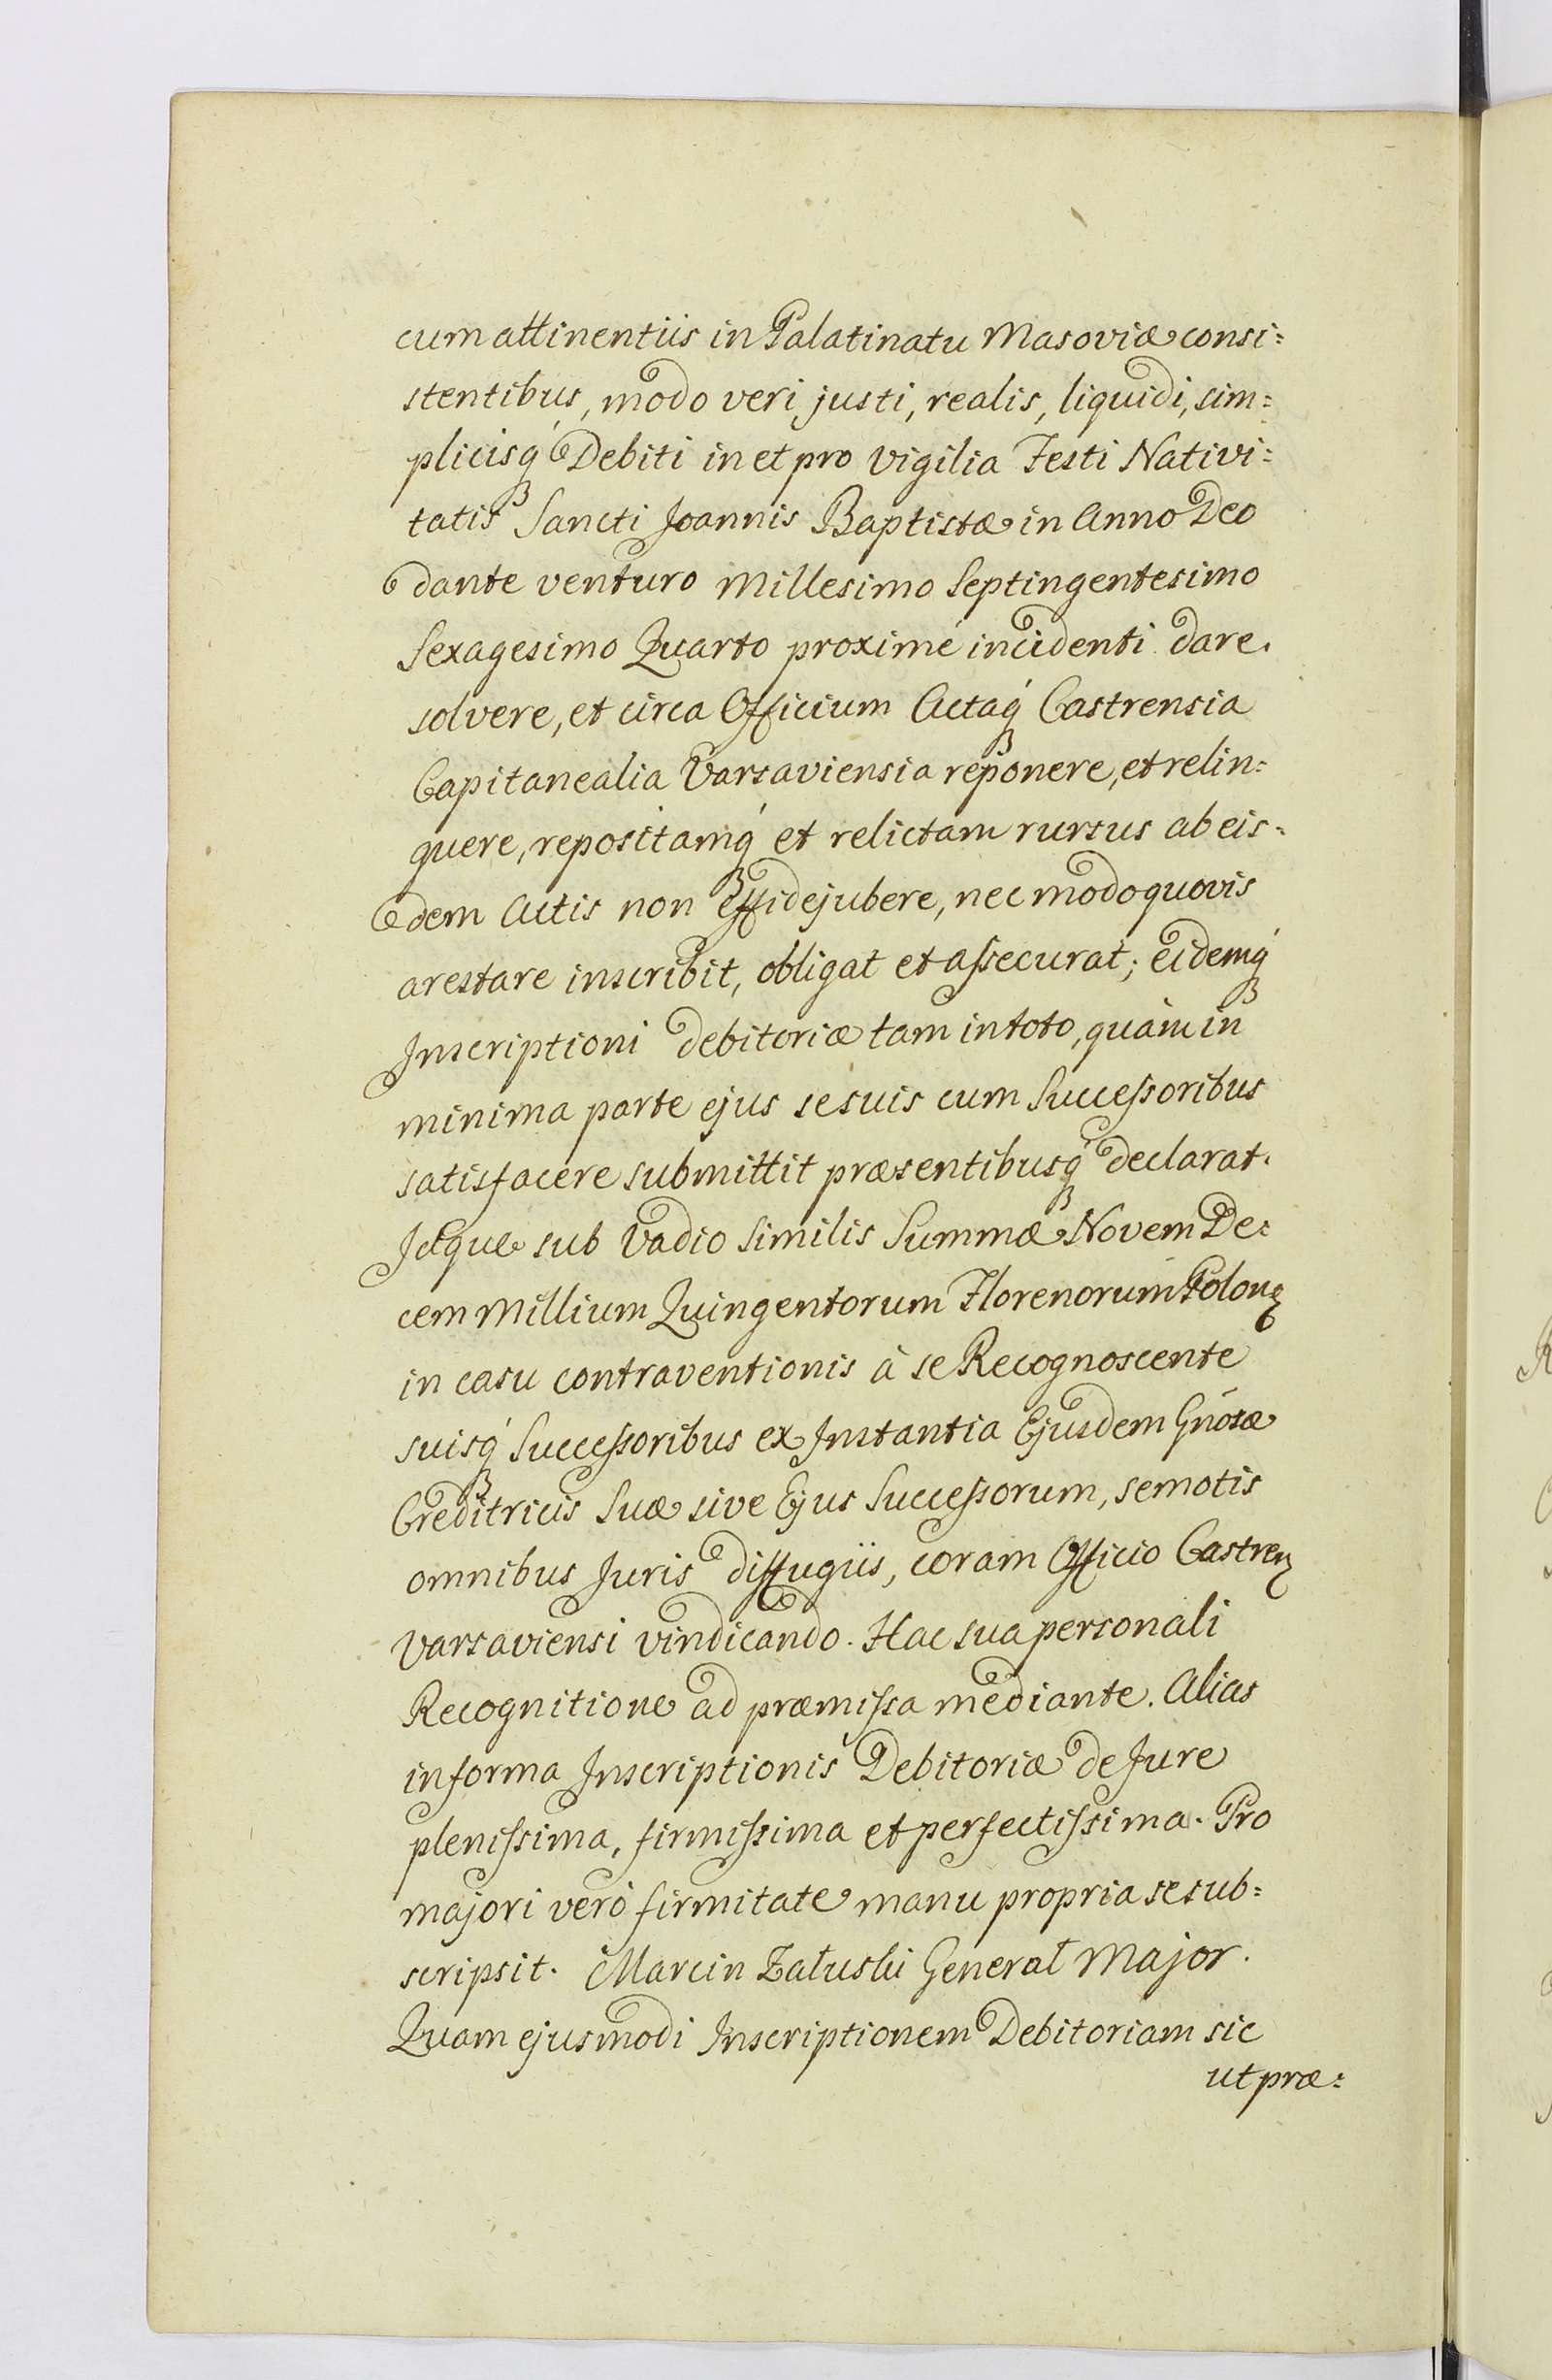 cum attinentiis in Palatinatu Masoviæ consi=
stentibus, modo veri, justi, realis, liquidi, sim=
plicisq́ Debiti in et pro Vigilia Festi Nativi=
tatis Sancti Joannis Baptistæ in Anno Deo
dante venturo Millesimo Septingentesimo
Sexagesimo Quarto proximé incidenti dare.
solvere, et circa Officium Actaq́ Castrensia
Capitanealia Varsaviensia reponere, et relin=
quere, repositamq́ et relictam rursus ab eis=
dem Actis non effidejubere, nec modo quovis
arestare inscribit, obligat et assecurat; eidemq́
Inscriptioni debitoriæ tam in toto, quàm in
minima parte ejus se suis cum Successoribus
satisfacere submittit præsentibusq́ declarat.
Idque sub Vadio similis Summæ Novem De=
cem Millium Quingentorum Florenorum Polon:
in casu contraventionis à se Recognoscente
suisq́ Successoribus ex Instantia Ejusdem Gńosæ
Creditricis Suæ sive Ejus Successorum, semotis
omnibus Juris diffugiis, coram Officio Castren:
Varsaviensi vindicando. Hac sua personali
Recognitione ad præmissa mediante. Alias
in forma Inscriptionis Debitoriæ de Jure
plenissima, firmissima et perfectissima. Pro
majori veró firmitate manu propria se sub=
scripsit. Marcin Załuski Generał Major.
Quam ejusmodi Inscriptionem Debitoriam sic
ut præ=